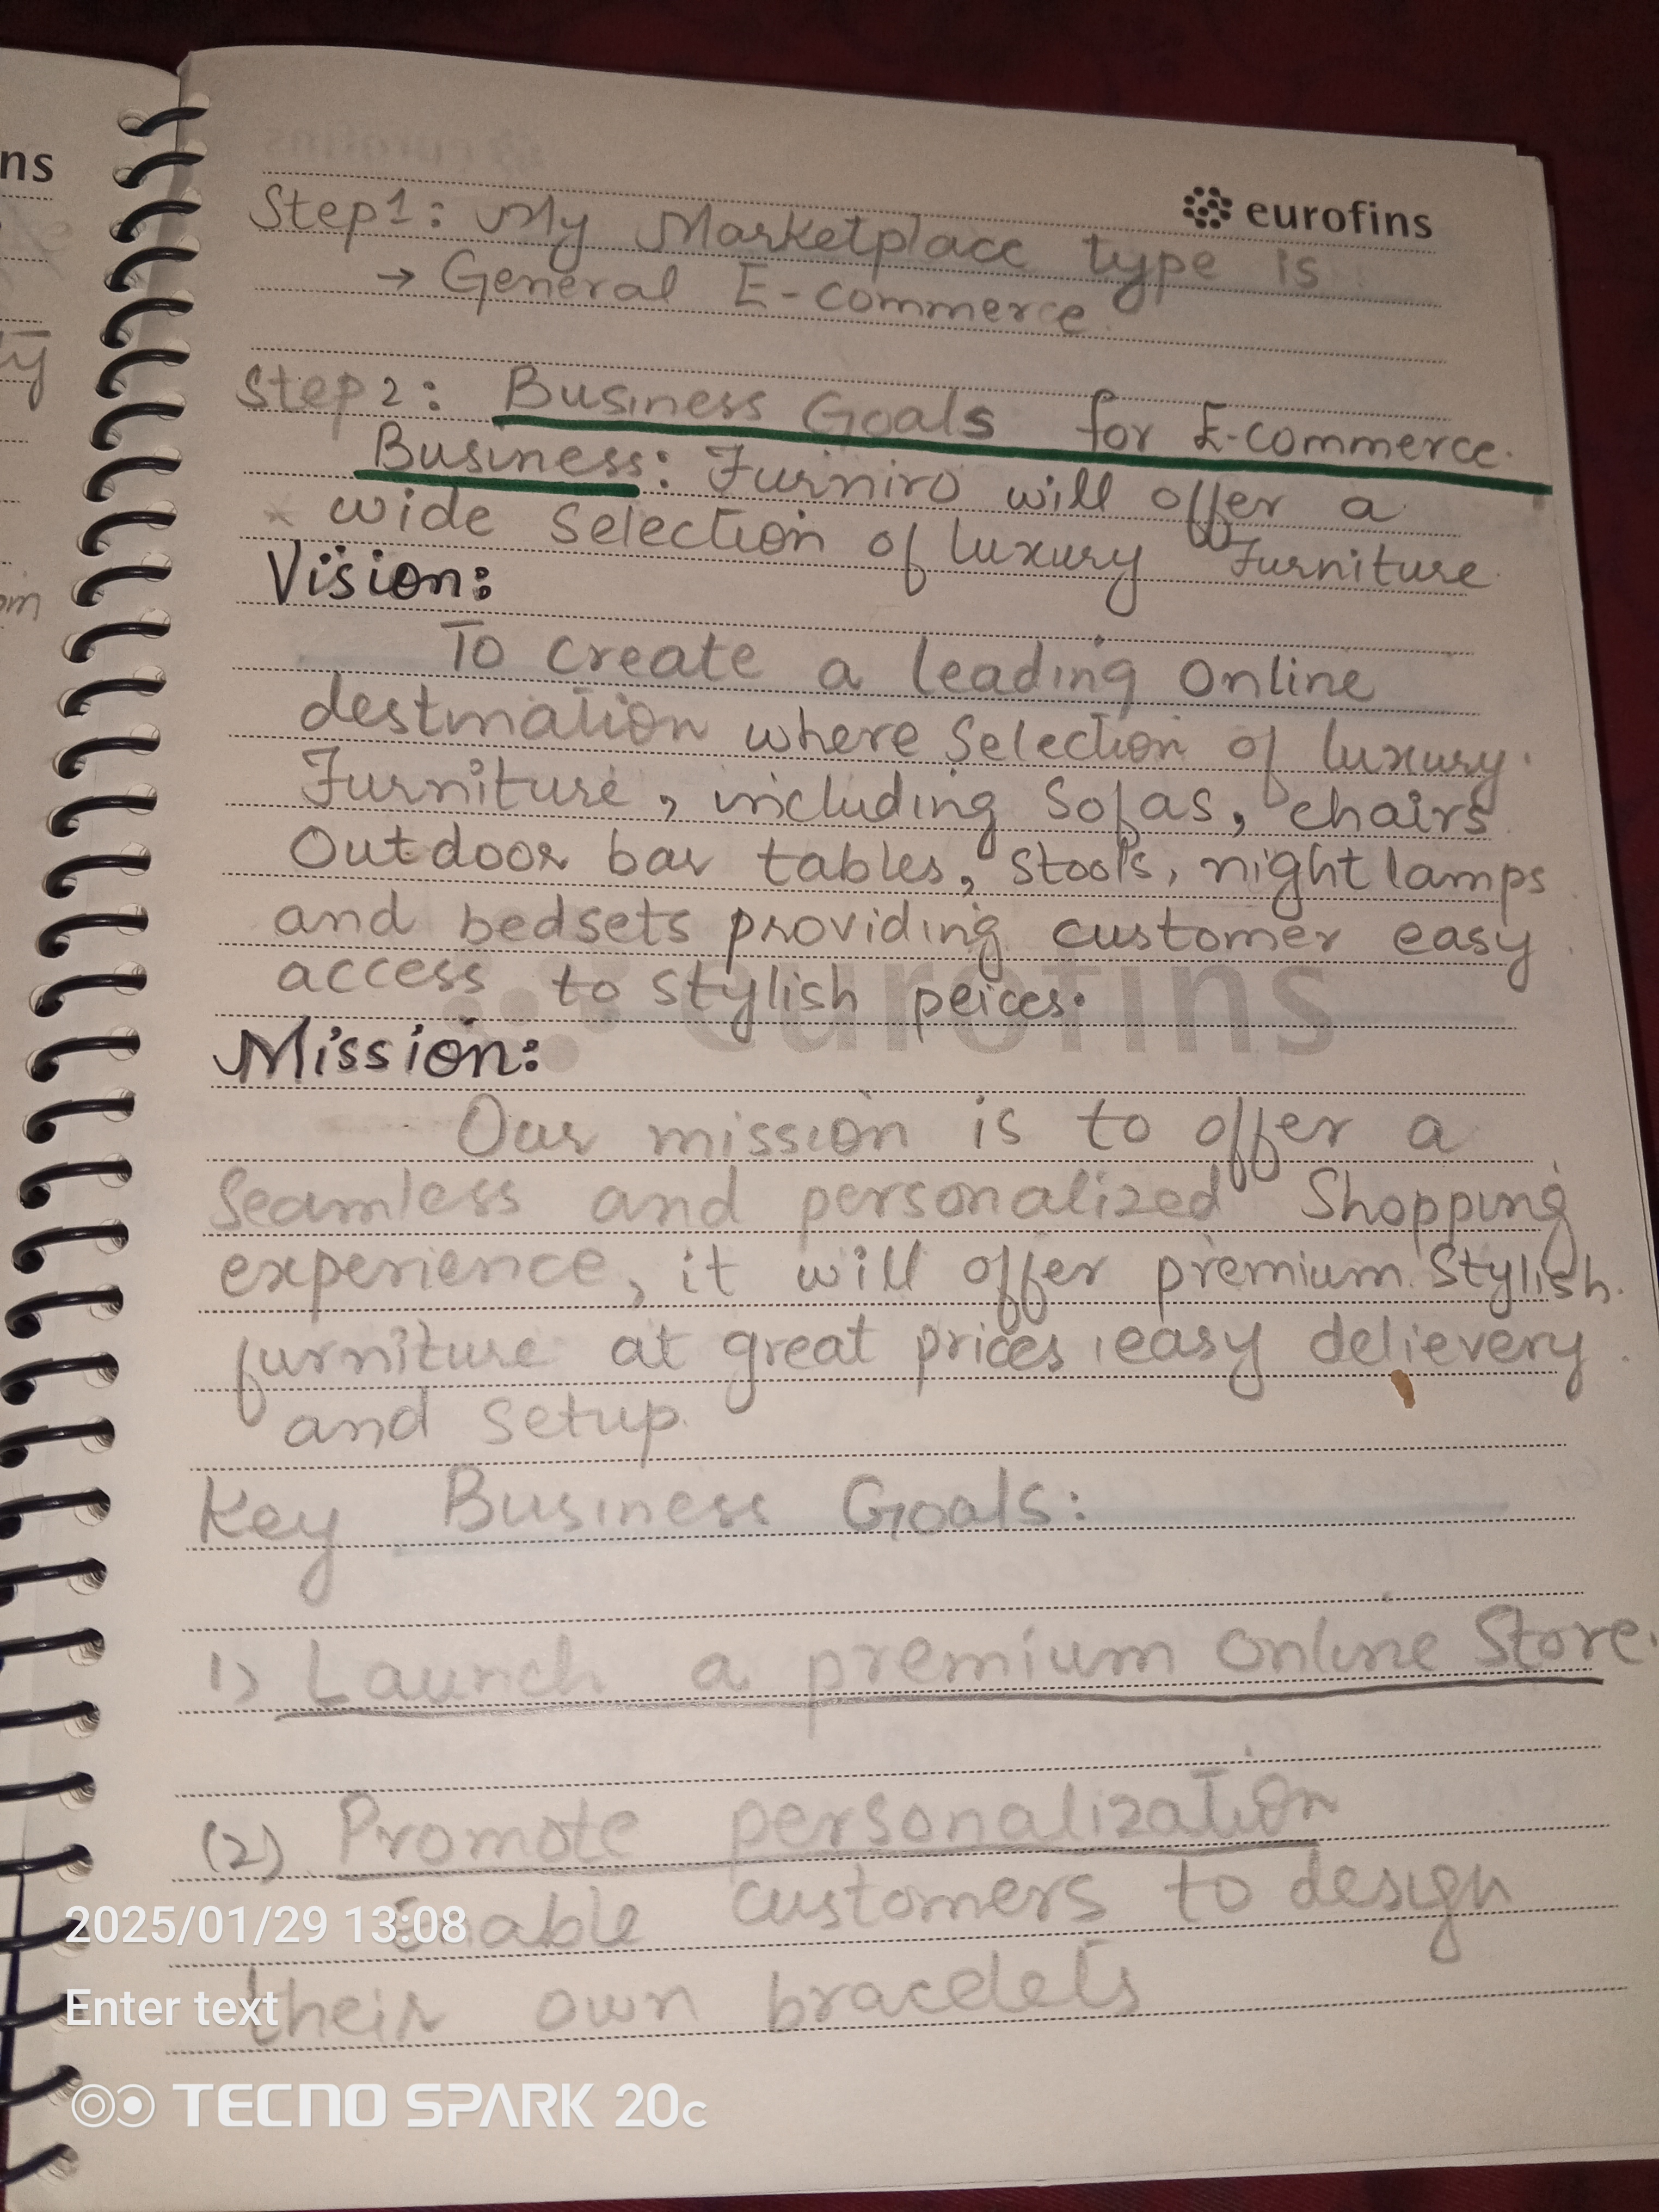 ns
eurofins
Step1: My Marketplace type is
→ General E-commerce.
Step2: Business Goals for E-commerce.
Business: Furniro will offer a
wide Selection of luxury Furniture
Vision:
To create a leading online
destination where Selection of luxury
Furniture, including Sofas, chairs
Outdoor bar tables, Stools, night lamps
and bedsets providing customer easy
access to stylish peices.
eurofins
Mission:
Our mission is to offer a
Seamless and personalized Shopping
experience, it will offer premium Stylish
furniture at great prices, easy delievery
and setup.
Key Business Goals:
1) Launch a premium online Store.
(2) Promote personalization
Enable customers to design
their own bracelets
2025/01/29 13:08
Enter text
TECNO SPARK 20C